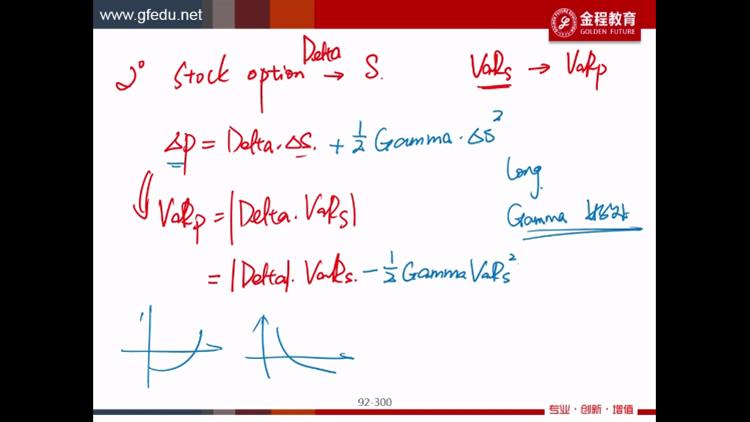 www.gfedu.net
金程教育
GOLDEN FUTURE
2° Stock option Delta → S. VaRs → VaRp
ΔP = Delta·ΔS. + 1/2 Gamma·ΔS²
long
Gamma
VaRp = |Delta·VaRs|
= |Delta|·VaRs. − 1/2 Gamma VaRs²
92-300
专业·创新·增值